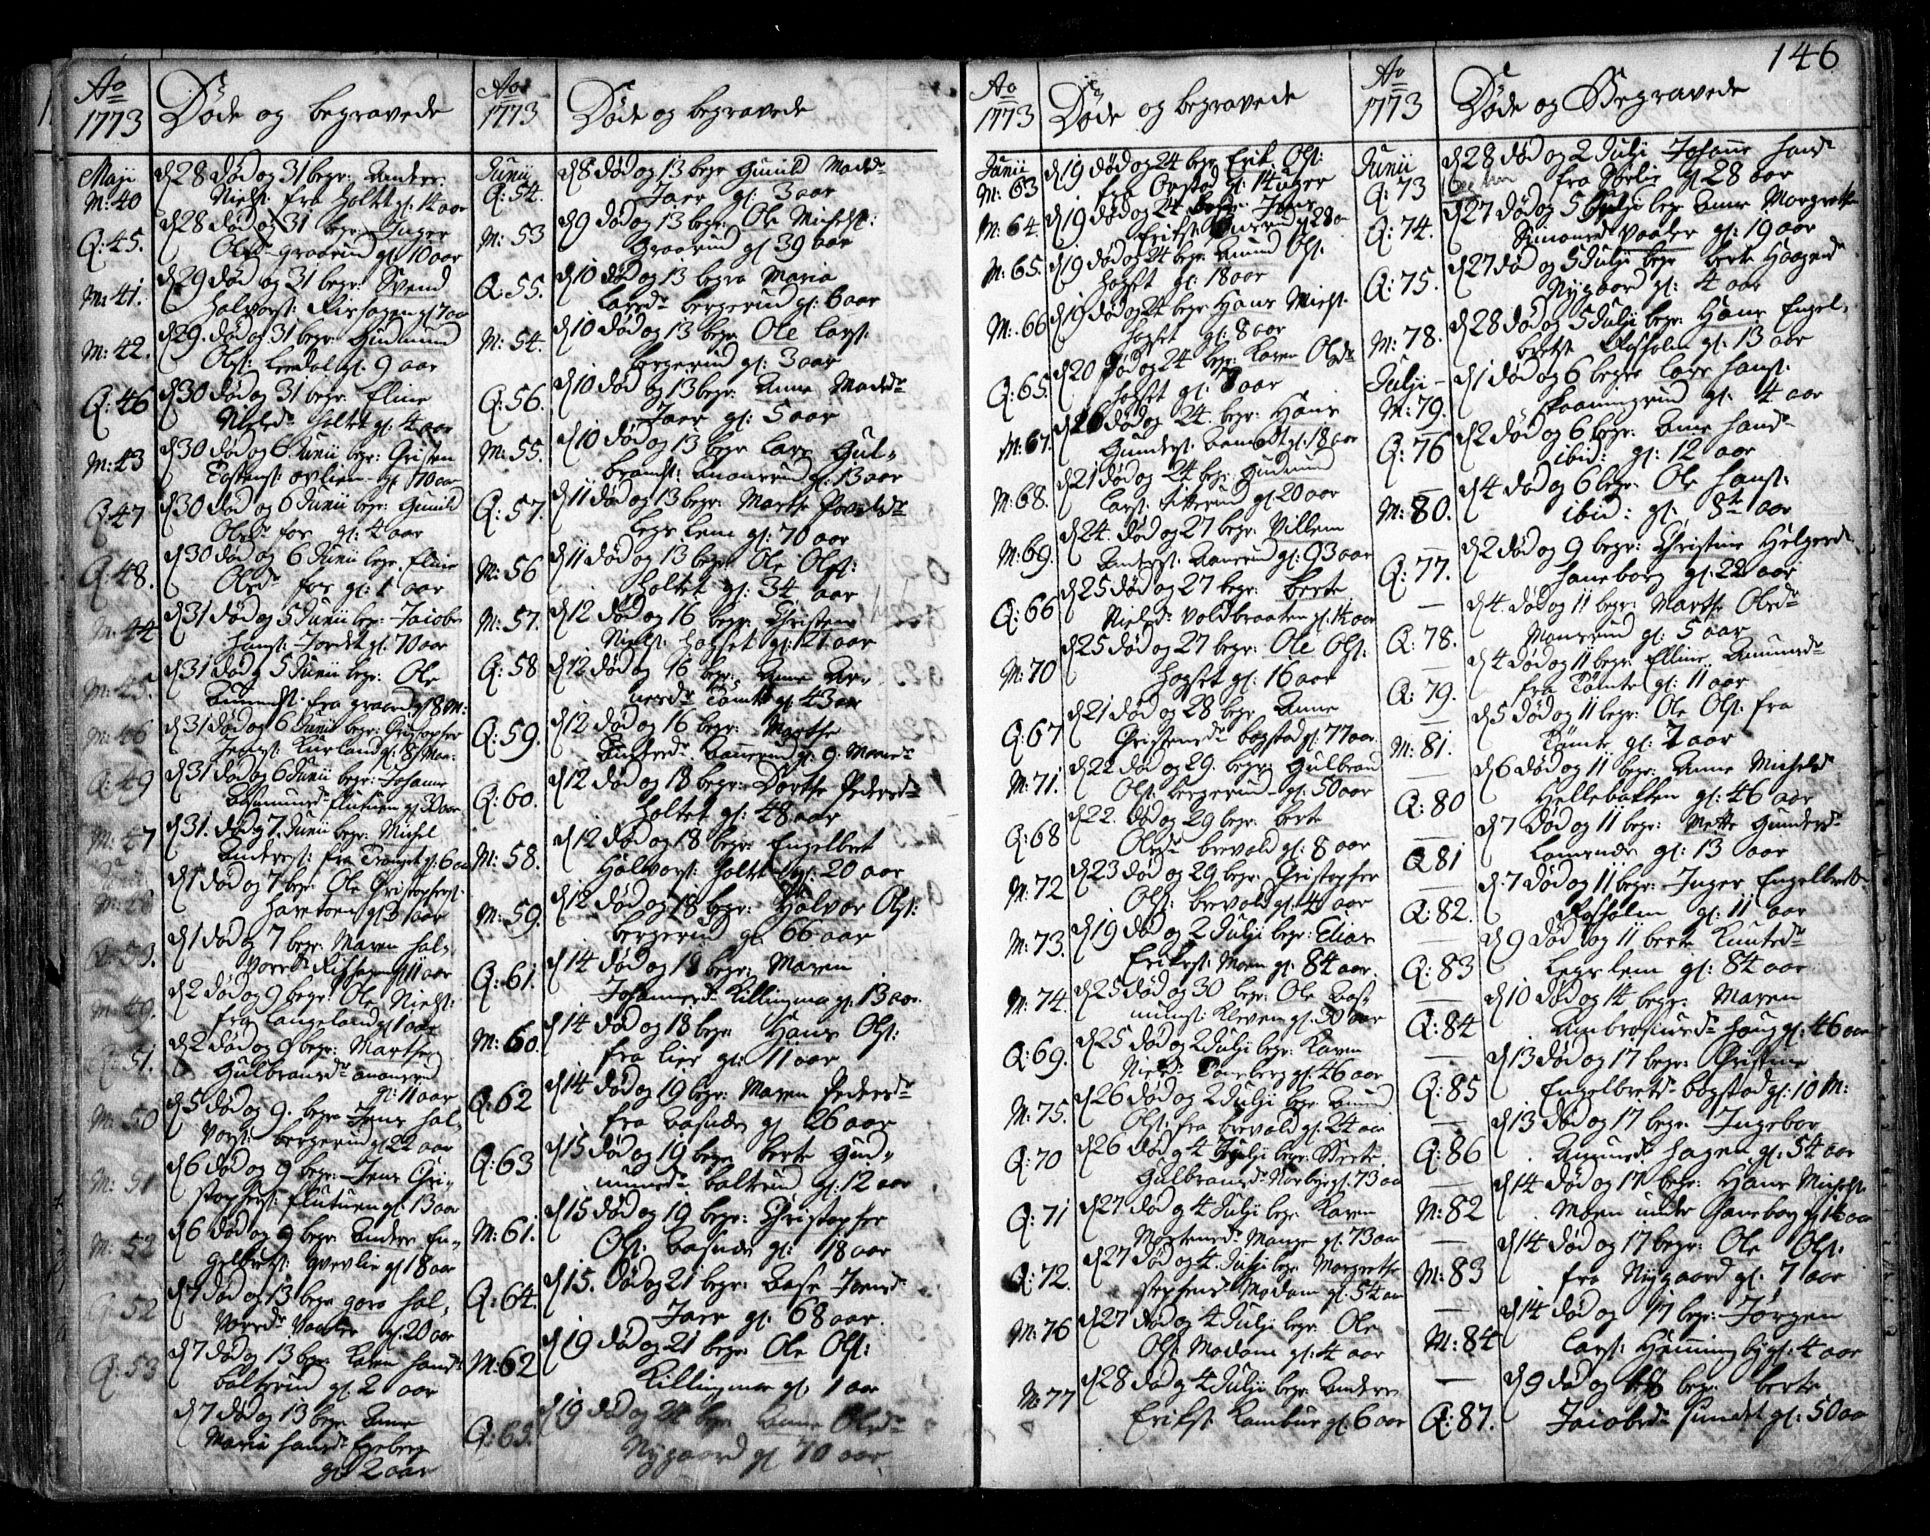 146
Ao 1773
Døde og begravede
Maji
M: 40
d 28 død og 31 begr: Anders
Niels: fra Holtet gl: 14 aar
Q: 45.
d 28 død og 31 begr: Inger
Olsd: Graarud gl: 10 aar
M: 41.
d 29 død og 31 begr: Svend
Halvors: Rishagen gl 7 aar
M: 42.
d 29. død og 31 begr: Gudmund
Ols: gl: 9 aar
Q: 46
d 30 død og 31 begr: Eline
Nielsd: Holtet gl: 4 aar
M: 43
d 30 død og 6 Junii begr:
gl: 70 aar
Q: 47
d 30 død og 6 Junii begr: Gunild
Olsd: fos gl: 4 aar
Q: 48.
d 30 død og 6 Junii begr. Eline
Olsd: fos gl: 1 aar
M: 44
d 31 død og 5 Junii begr: Jacob
Hans: gl: 70 aar
M: 45.
d 31 død og 5 Junii begr: Ole
fra graarud gl 8 M:
M: 46
d 31 død og 6 Junii begr: Christopher
Kurland gl: 8 Mon:
Q: 49
d 31 død og 6 Junii begr: Johanne
Aasmundsd: flutuen gl: 30 aar
M: 47
d 31. død og 7. Junii begr: Michel
Anders: fra Tranget gl: 6 aar
Junii
M: 48
d 1 død og 7 begr: Ole Christophers:
Haretoen gl: 6 aar
d 1 død og 7 begr: Maren Hal-
vorsd: Rishagen gl 11 aar
M: 49.
d 2 død og 9 begr: Ole Niels:
fra Langeland gl 1 aar
Q: 51.
d 2 død og 9 begr: Marthe
Gulbransd:
gl: 11 aar
M: 50
d 5 død og 9. begr Jens Hal-
vors: bergerud gl 22 aar
M: 51
d 6 død og 9 begr: Jens Chri-
stophers: flutuen gl: 13 aar
M: 52
d 6 død og 9 begr: Anders En-
gelbrets: gl 18 aar
Q: 52
d 7 død og 13 begr goro Hal-
vorsd: Vaaler gl: 20 aar
Q: 53
d 7 død og 13 begr. Karen Hansd:
baltzrud gl 2 aar
d 7 død og 13 begr Anne
Maria Hansd: Egeberg
gl 2 aar
Ao 1773
Døde og begravede
Junii
Q: 54.
d 8 død og 13 begr Gunild Madsd:
Jaer gl: 3 aar
M: 53
d 9 død og 13 begr: Ole Michels:
Graarud gl 39 aar
Q: 55.
d 10 død og 13 begra Maria
Larsd: bergerud gl: 6 aar
M: 54.
d 10 død og 13 begr Ole Lars:
bergerud gl: 3 aar
Q: 56.
d 10 død og 13 begr: Anne Madsd:
Jaer gl: 5 aar
M: 55.
d 10 død og 13 begr Lars Gul-
brands: gl: 13 aar
Q: 57.
d 11 død og 13 begr: Marthe Povelsd:
Legslem gl: 70 aar
M: 56
d 11 død og 13 begr Ole Ols:
Holtet gl: 34 aar
M: 57.
d 12 død og 16 begr: Christens
Niels: Hogset gl: 21 aar
Q: 58
d 12 død og 16 begr: Anne
Tømte gl 43 aar
Q: 59.
d 12 død og 16 begr: Marthe
Andersd: gl: 9 Maaned:
Q: 60.
d 12 død og 18 begr: Dorthe Pedersd:
Holtet gl: 48 aar
M: 58.
d 12 død og 18 begr: Engelbret
Halvors: Holtet gl: 20 aar
M: 59.
d 12 død og 18 begr: Halvor Ols:
bergerud gl: 66 aar
Q: 61.
d 14 død og 18 begr: Maren
Johannesd: Killingmo gl: 13 aar
M: 60.
d 14 død og 18 begr Hans Ols:
fra lier gl: 11 aar
Q: 62
d 14 død og 19 begr: Maren Pedersd:
fra Basnæs gl 26 aar
Q: 63
d 15 død og 19 begr berte Gud-
mundsd: baltzrud gl: 12 aar
M: 61.
d 15 død og 19 begr: Christopher
Ols: Basnæs gl: 18 aar
Q: 64.
d 15. død og 21 begr: Aase Joensd:
Jaer gl: 68 aar.
M: 62
d 19 død og 21 begr: Ole Ols:
Killingmo gl: 1 aar
Q: 65.
d 19 død og 24 begr: Anne Olsd:
Nygaard gl 70 aar
Ao 1773
Døde og begravede
Junii
M: 63
d 19 død og 24 begr Erik Ols:
fra Opstad gl: 14 uger
M: 64.
d 19 død og 24 begr: Jens
Eriks:
M: 65.
d 19 død og 24 begr: Amund Ols:
Hogset gl: 18 aar
M: 66
d 19 død og 24 begr Hans Niels:
Hogset gl: 8 aar
Q: 65.
d 20 død og 24 begr: Karen Olsd:
Hogset gl: 8 aar
M: 67.
d 20 død og 24. begr: Hans
Gunders: gl: 18 aar
M: 68.
d 21 død og 24 begr: Gudmund
Lars: gl 20 aar
M: 69.
d 24. død og 27 begr: Villem
Anders: Aanerud gl: 93 aar
Q: 66
d 25 død og 27 begr: berte
Nielsd: Voldbraaten gl: 14 aar
M: 70
d 25 død og 27 begr: Ole Ols:
Hogset gl: 16 aar
Q: 67
d 21 død og 28 begr. Anne
Christensd: bogstad gl: 77 aar.
M: 71.
d 22 død og 29. begr: Gulbrand
Ols: bergerud gl: 50 aar
Q: 68
d 22. død og 29 begr: berte
Olsd: brevold gl: 8 aar
M: 72
d 23 død og 29 begr: Christopher
Ols: brevold gl: 4 aar
M: 73.
d 19 død og 2 Julji begr: Elias
Eriks: Moen gl: 84 aar.
M: 74.
d 25 død og 30 begr: Ole Aas-
munds: Kleven gl: 30 aar
Q: 69.
d 25 død og 2 Julji begr: Karen
Nielsd: Taneberg gl: 46 aar
M: 75.
d 26 død og 2 Julji begr Amund
Ols: fra brevold gl: 24 aar
Q: 70
d 26 død og 4 Julji begr: Berte
Gulbransd: Norbye gl: 73 aar
Q: 71
d 27 død og 4 Julji begr Karen
Mortensd: Mange gl: 73 aar
Q: 72.
d 27 død og 4. Julji begr Margrethe
Stephensd: Modom gl: 54 aar
M: 76
d 27 død og 4 Julji begr Ole
Ols: Modom gl: 4 aar
M: 77
d 28 død og 4 Julji begr Anders
Eriks: Kambus gl: 6 aar
Ao 1773
Døde og Begravede
Junii
Q: 73
d 28 død og 2 Julji Johanne Hansd:
fra Norlie gl 28 aar
Q: 74.
d 27 død og 5 Julji begr Anne Margrethe
Simonsd: Vaaler gl: 19 aar
Q: 75.
d 27 død og 5 Julji begr berte Haagensd:
Nygaard gl: 4 aar
M: 78.
d 28 død og 5 Julji begr: Hans Engel-
brets: Rosholm gl: 13 aar
Julji
M: 79.
d 1 død og 6 begr: Lars Hans:
Skaanngrud gl: 4 aar
Q: 76
d 2 død og 6 begr: Anne Hansd:
ibid: gl: 12 aar
M: 80.
d 4 død og 6 begr: Ole Hans:
ibid: gl: 8te aar
Q: 77.
d 2 død og 9 begr: Christine Helgesd:
Haneborg gl: 22 aar
Q: 78.
d 4. død og 11 begr: Marthe Olsd:
Monserud gl: 5 aar
Q: 79.
d 4 død og 11 begr: Elline Amundsd:
fra Tømte gl: 11 aar
M: 81.
d 5 død og 11 begr: Ole Ols: fra
Tømte gl: 7 aar
Q: 80
d 6 død og 11 begr: Anne Michelsd:
Hellebakken gl: 46 aar
Q 81
d 7 død og 11 begr: Mette Gundersd:
gl: 13 aar
Q: 82.
d 7 død og 11 begr: Inger Engelbretsd:
Rosholm gl: 11 aar
Q: 83
d 9 død og 11 berte Knutsd:
Legslem gl: 84 aar
Q: 84
d 10 død og 14 begr: Maren
Ambrosiusd: Haug gl: 46 aar
Q: 85
d 13 død og 17 begr: Christine
Engelbretsd: bogstad gl: 10 M:
Q: 86
d 13 død og 17 begr: Ingebor
Amundsd: Hagen gl: 54 aar
M: 82
d 14 død og 17 begr: Hans Michels:
Moen under Haneborg gl 14 aar
M: 83
d 14 død og 17 begr: Ole Ols:
fra Nygaard gl: 7 aar
M: 84
d 14 død og 17 begr: Jørgen
Lars: Hemmingby gl: 4 aar
Q: 87.
d 9 død og 18 begr berte
Jacobsd: Sundet gl: 50 aar